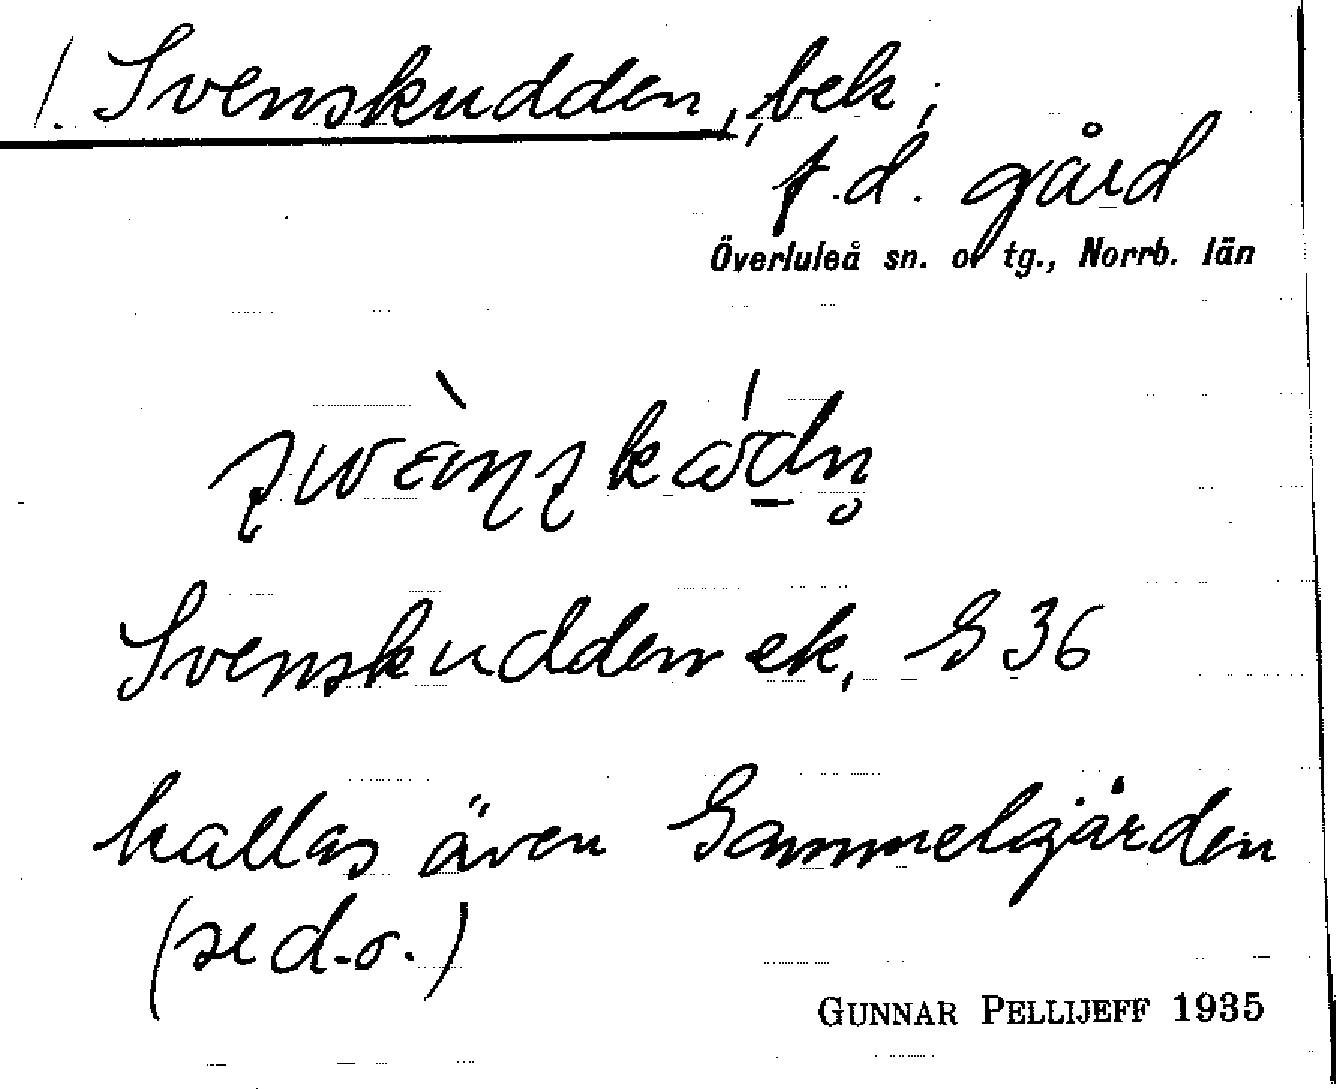 1. Svenskudden, bek.,
f.d. gård
Överluleå sn. o. tg., Norrb. län
Svenskudden ek. G 36
kallas även Gammelgården
(se d.o.)
GUNNAR PELLIJEFF 1935